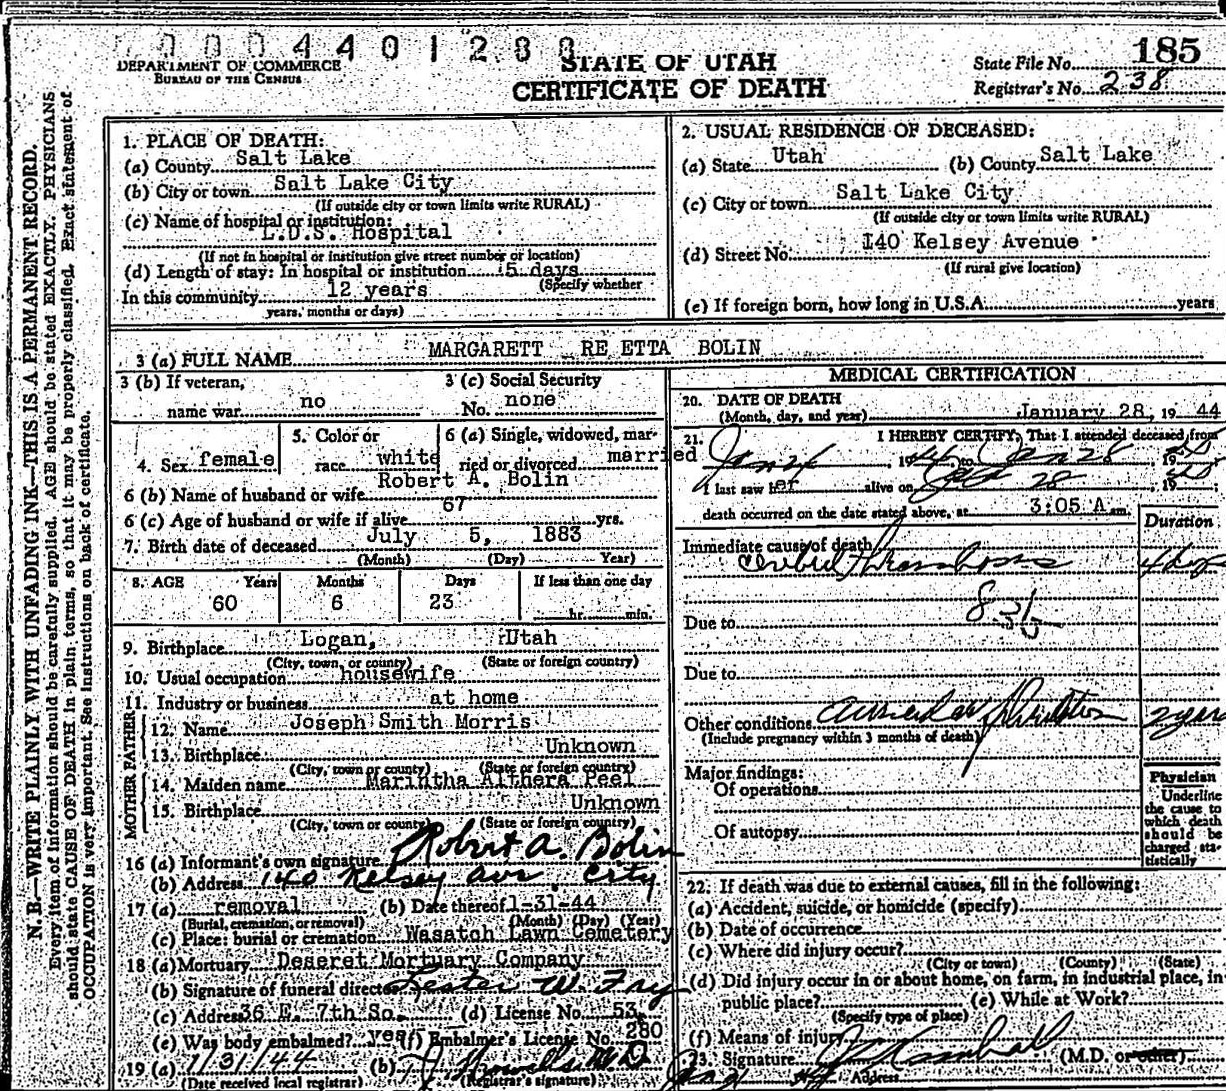 0 0 0 4 4 0 1 2 8 8
DEPARTMENT OF COMMERCE
BUREAU OF THE CENSUS
STATE OF UTAH
CERTIFICATE OF DEATH
State File No. 185
Registrar's No. 238
N. B.—WRITE PLAINLY WITH UNFADING INK—THIS IS A PERMANENT RECORD.
Every item of information should be carefully supplied. AGE should be stated EXACTLY. PHYSICIANS
should state CAUSE OF DEATH in plain terms, so that it may be properly classified. Exact statement of
OCCUPATION is very important. See instructions on back of certificate.
1. PLACE OF DEATH:
(a) County Salt Lake
(b) City or town Salt Lake City
(If outside city or town limits write RURAL)
(c) Name of hospital or institution:
L.D.S. Hospital
(If not in hospital or institution give street number or location)
(d) Length of stay: In hospital or institution 5 days
(Specify whether
In this community 12 years
years, months or days)
2. USUAL RESIDENCE OF DECEASED:
(a) State Utah (b) County Salt Lake
(c) City or town Salt Lake City
(If outside city or town limits write RURAL)
(d) Street No. 140 Kelsey Avenue
(If rural give location)
(e) If foreign born, how long in U.S.A. years
3 (a) FULL NAME MARGARETT RE ETTA BOLIN
3 (b) If veteran,
name war no
3 (c) Social Security
No. none
4. Sex female
5. Color or
race white
6 (a) Single, widowed, mar-
ried or divorced married
6 (b) Name of husband or wife Robert A. Bolin
6 (c) Age of husband or wife if alive 67 yrs.
7. Birth date of deceased July 5, 1883
(Month) (Day) Year)
8. AGE Years Months Days If less than one day
60 6 23 hr. min.
9. Birthplace Logan, Utah
(City, town, or county) (State or foreign country)
10. Usual occupation housewife
11. Industry or business at home
MOTHER FATHER
12. Name Joseph Smith Morris
13. Birthplace Unknown
(City, town or county) (State or foreign country)
14. Maiden name Marintha Althera Peel
15. Birthplace Unknown
(City, town or county) (State or foreign country)
16 (a) Informant's own signature Robert A. Bolin
(b) Address 140 Kelsey Ave. City
17 (a) removal (b) Date thereof 1-31-44
(Burial, cremation, or removal) (Month) (Day) (Year)
(c) Place: burial or cremation Wasatch Lawn Cemetery
18 (a) Mortuary Deseret Mortuary Company
(b) Signature of funeral director Lester W. Fry
(c) Address 36 E. 7th So. (d) License No. 53
(e) Was body embalmed? yes (f) Embalmer's License No. 280
19 (a) 1/31/44 (b) M.D.
(Date received local registrar) (Registrar's signature)
MEDICAL CERTIFICATION
20. DATE OF DEATH
(Month, day, and year) January 28, 19 44
21. I HEREBY CERTIFY, That I attended deceased from
Jan 24, 1944, to Jan 28, 19
I last saw her alive on Jan 28, 19
death occurred on the date stated above, at 3:05 A m.
Duration
Immediate cause of death
Cerebral Thrombosis 4 days
Due to
Due to
Other conditions 2 years
(Include pregnancy within 3 months of death)
Major findings:
Of operations
Of autopsy
Physician
Underline
the cause to
which death
should be
charged sta-
tistically
22. If death was due to external causes, fill in the following:
(a) Accident, suicide, or homicide (specify)
(b) Date of occurrence
(c) Where did injury occur?
(City or town) (County) (State)
(d) Did injury occur in or about home, on farm, in industrial place, in
public place? (e) While at Work?
(Specify type of place)
(f) Means of injury
23. Signature (M.D. or other)
Address